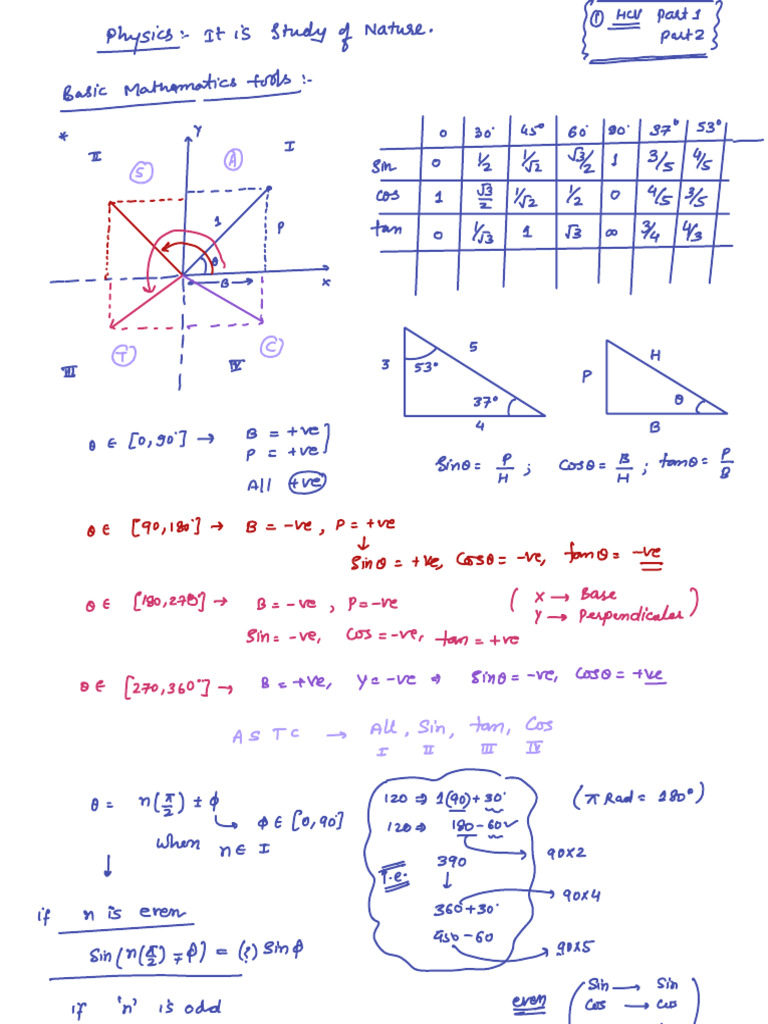 Physics:- It is Study of Nature.
① HCV Part 1
Part 2
Basic Mathematics tools:-
*
II
I
Y
S
A
1
P
θ
B
x
T
C
III
IV
0 30° 45° 60° 90° 37° 53°
Sin 0 1/2 1/√2 √3/2 1 3/5 4/5
Cos 1 √3/2 1/√2 1/2 0 4/5 3/5
tan 0 1/√3 1 √3 ∞ 3/4 4/3
3
53°
5
37°
4
P
H
θ
B
Sinθ = P/H ; Cosθ = B/H ; tanθ = P/B
θ ∈ [0,90°] → B = +ve
P = +ve
All +ve
θ ∈ [90,180°] → B = -ve, P = +ve
↓
Sinθ = +ve, Cosθ = -ve, tanθ = -ve
θ ∈ [180,270] → B = -ve, P = -ve
(X → Base
Y → Perpendicular)
Sin = -ve, Cos = -ve, tan = +ve
θ ∈ [270,360°] → B = +ve, Y = -ve ⇒ Sinθ = -ve, Cosθ = +ve
A S T C → All, Sin, tan, Cos
I II III IV
θ = n(π/2) ± φ
φ ∈ [0,90]
when n ∈ I
↓
120 ⇒ 1(90)+30°
120 ⇒ 180-60✓
390
I.e.
↓
360+30°
450-60
(π Rad = 180°)
90×2
90×4
90×5
if n is even
Sin(n(π/2) ∓ φ) = (?) Sinφ
if 'n' is odd
even
Sin → Sin
Cos → Cos